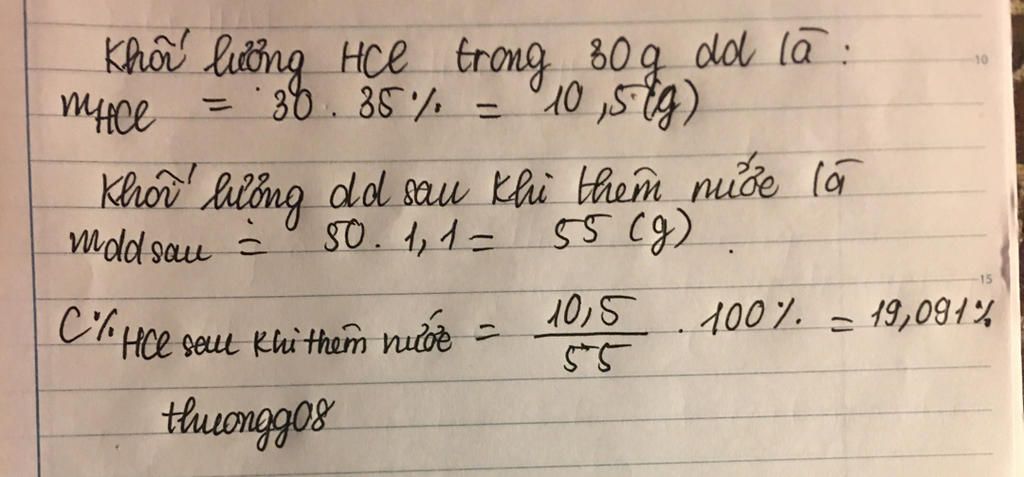 Khối lượng HCl trong 30g dd là:
mHCl = 30 . 35% = 10,5 (g)
10
Khối lượng dd sau khi thêm nước là
mdd sau = 50 . 1,1 = 55 (g).
15
C% HCl sau khi thêm nước = 10,5 / 55 . 100% = 19,091%
thuongg08